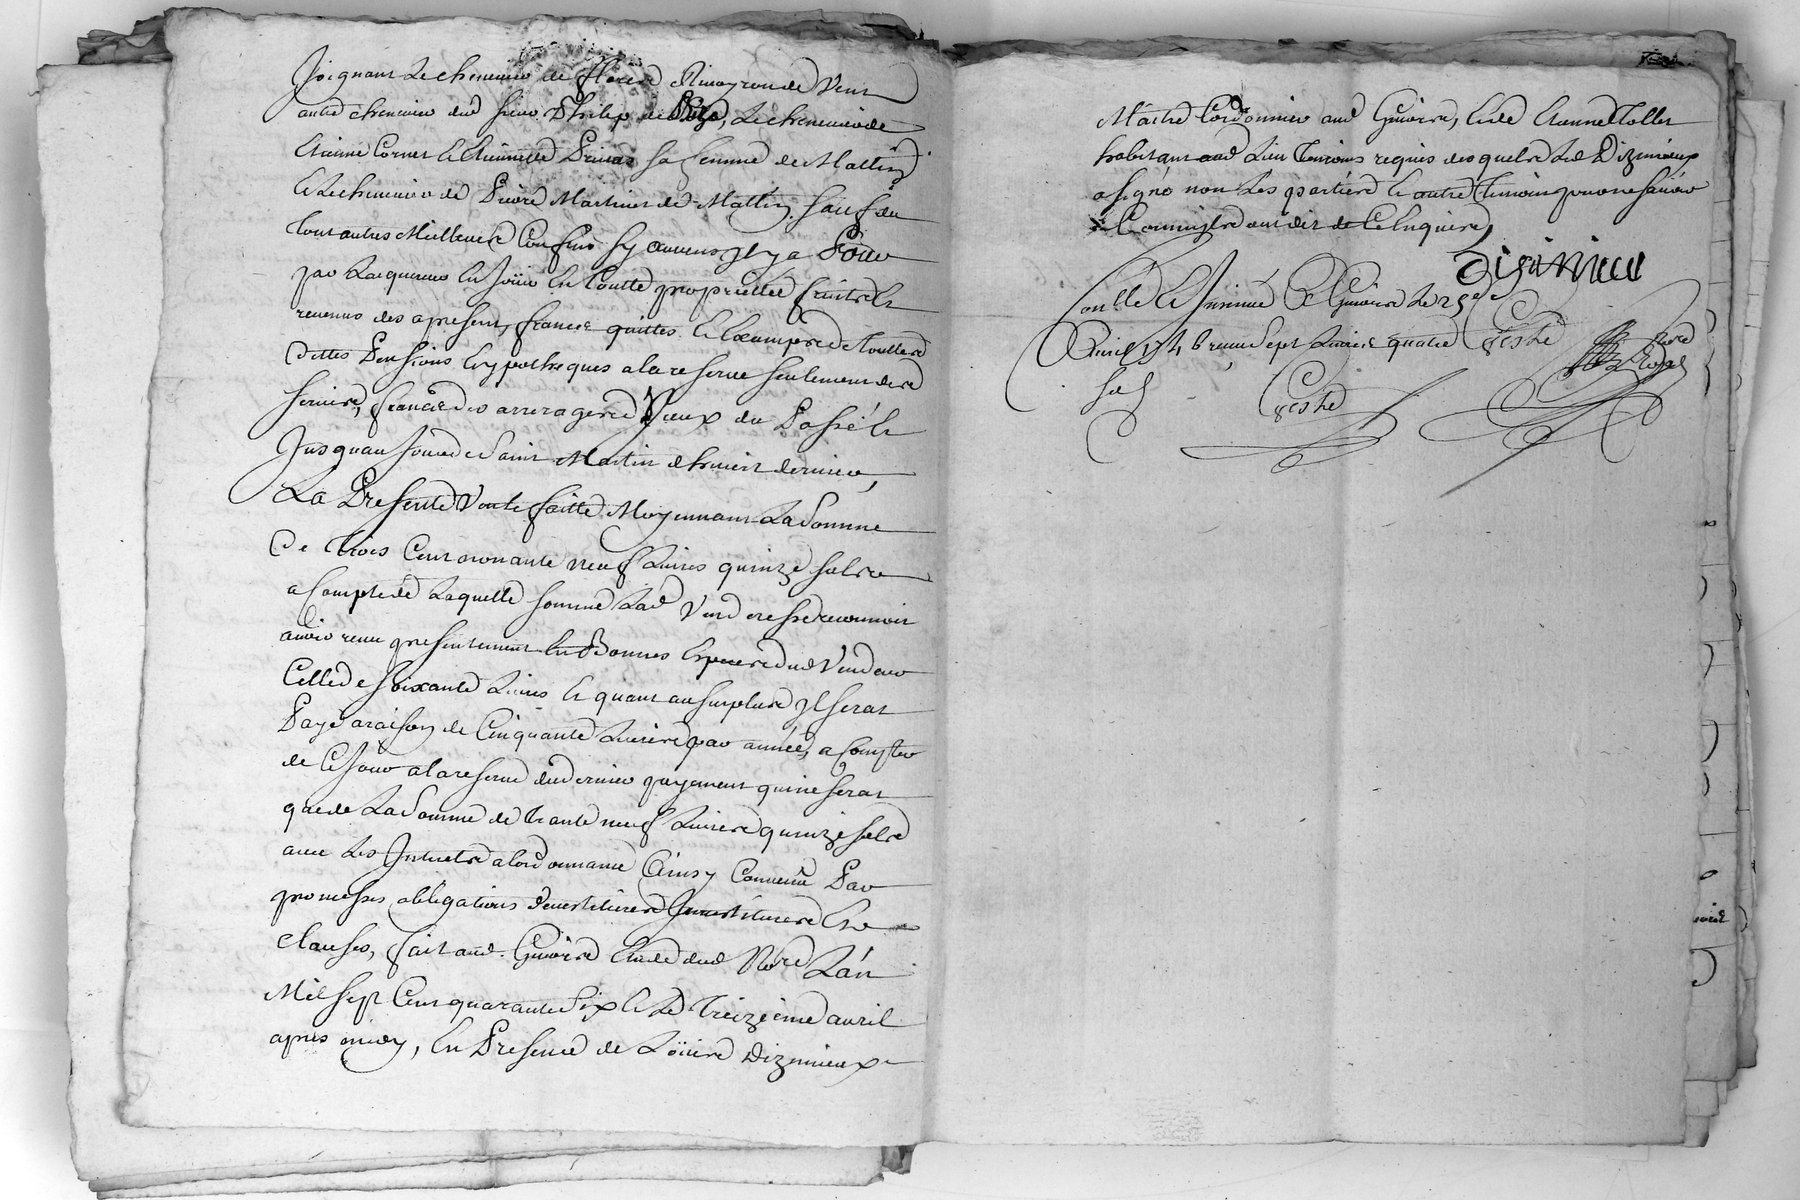 Joignant Le cheneviere de fleurie de vent
autre cheneviere dud sieur Philip de Le cheneviere de
Etienne Cornet et Etiennette sa femme de Mallin
et Le cheneviere de Pierre Martinet de Mallin, sauf du
tout autres Meilleurs Confins sy aucuns yl y a Pour
par Lacquereur En Jouir En toutte proprietté fruits et
revenus des apresent, francs quittes et Exempts de touttes
dettes Pensions hypotheques a la reserve seulement des
servis, francs des arrerages d'yceux du Passé et
Jusquau Jour de Saint Martin dhivert dernier,
La Presente Vente faitte Moyennant La Somme
De trois Cent nonante neuf Livres quinze sols
a Compte de Laquelle somme Lad Venderesse reconnoit
avoir receu presentement En Bonnes Especes dud
Celle de soixante Livres et quant au surplus yl serat
Payé a raison de Cinquante Livres par année, a Compter
de Ce Jour a la reserve du dernier payement qui ne serat
que de La Somme de trante neuf Livres quinze sols
avec Les Interets a lordonnance Ainsy Convenu Par
promesses obligations devestitures Investitures et
clauses, fait aud. Givors Etude dud Nore Lán
Mil sept Cent quarante six et Le Treizieme avril
apres midy, En Presence de Louis Dizimieux
Maitre Cordonnier aud Givors, et de Etienne
habitant aud Lieu temoins requis desquels Led Dizimieux
a signé non Les parties et autre temoin pour ne sçavoir
Comm'ils ont dit de Ce Enquis
Disimieu
Conllé et Insinué A Givors Le 25e
Avril 1746 receu sept Livres quatre
sols